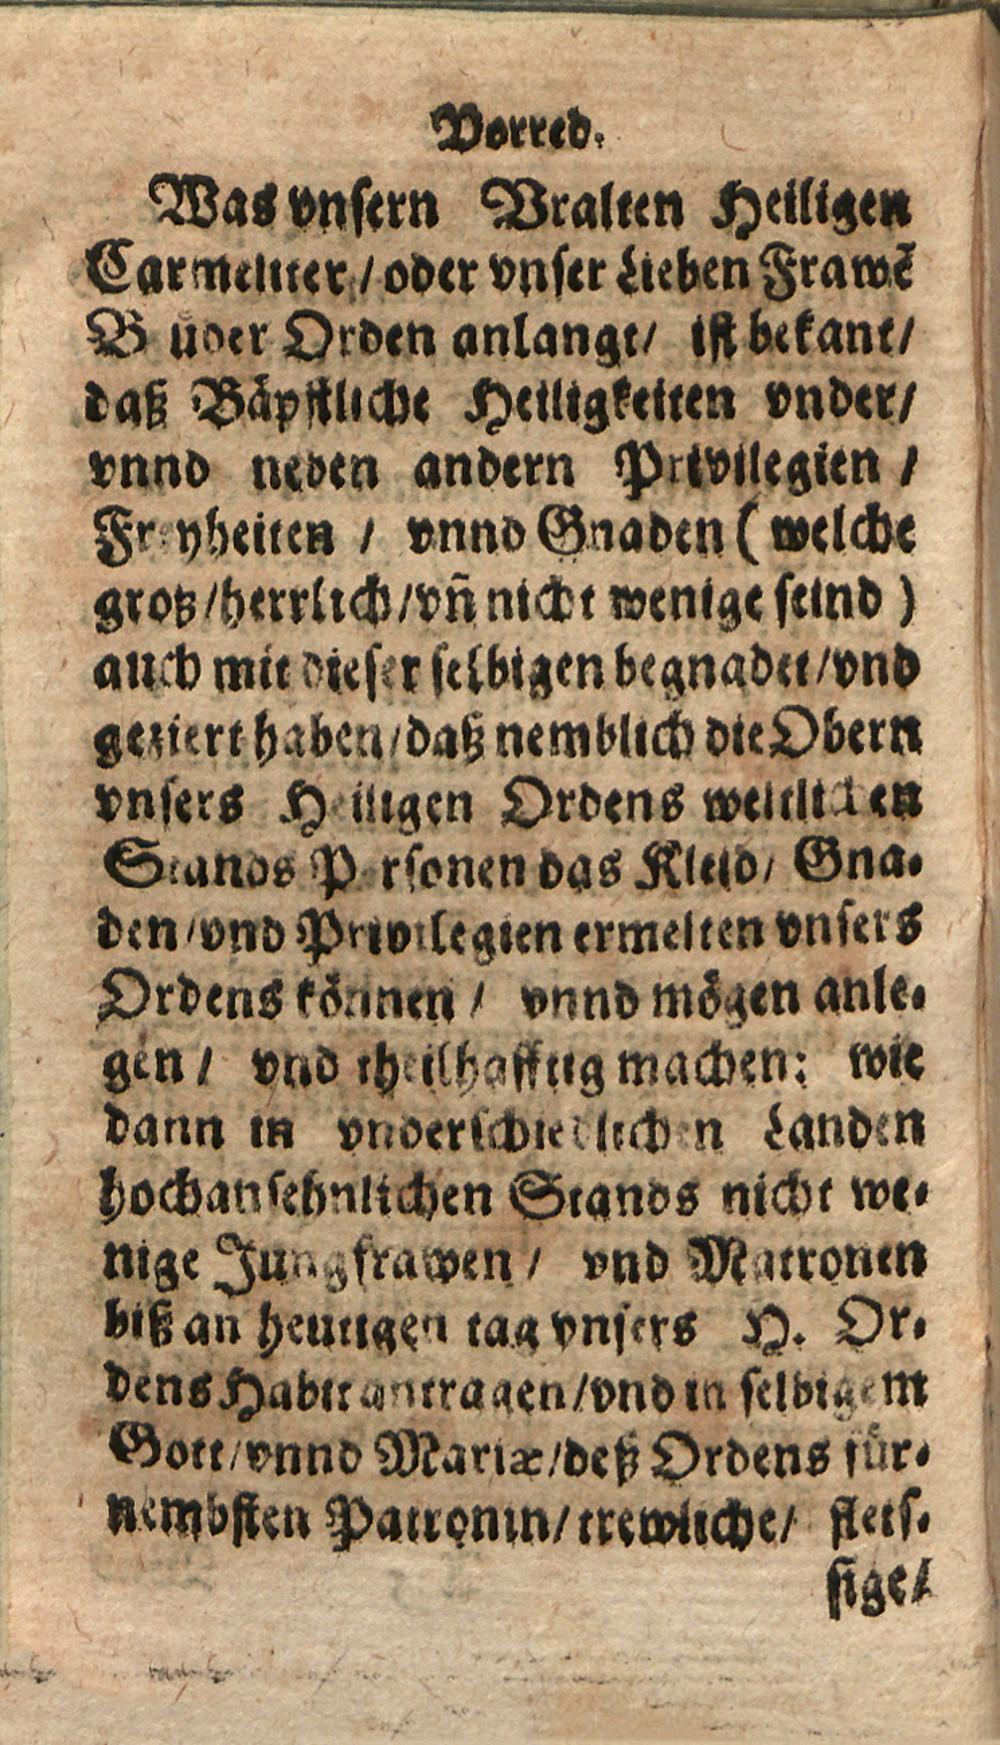 Vorred.
Was vnsern Vralten Heiligen
Carmeliter / oder vnser Lieben Frawẽ
Brůder Orden anlangt / ist bekant /
daß Bäpstliche Heiligkeiten vnder /
vnnd neben andern Privilegien /
Freyheiten / vnnd Gnaden ( welche
groß / herrlich / vñ nicht wenige seind )
auch mit dieser selbigen begnadet / vnd
geziert haben / daß nemblich die Obern
vnsers Heiligen Ordens weltlichen
Stands Personen das Kleid / Gna-
den / vnd Privilegien ermelten vnsers
Ordens können / vnnd mögen anle-
gen / vnd theilhafftig machen: wie
dann in vnderschiedlichen Landen
hochansehnlichen Stands nicht we-
nige Jungfrawen / vnd Matronen
biß an heutigen tag vnsers H. Or-
dens Habit antragen / vnd in selbigem
Gott / vnnd Mariæ / deß Ordens für-
nembsten Patronin / trewliche / fleis-
sige /